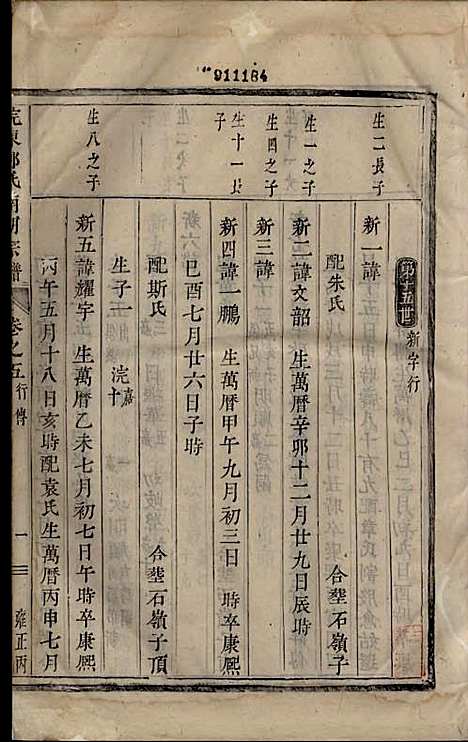 911184
第十五世 新字行
生二長子
新一諱
配朱氏 合塟石嶺子
生一之子
新二諱文韶 生萬曆辛卯十二月廿九日辰時
生四之子
新三諱
生十一長子
新四諱一鵬 生萬曆甲午九月初三日 時卒康熙
己酉七月廿六日子時
配斯氏 合塟石嶺子頂
生子一 浣十嘉
生八之子
新五諱耀宇 生萬曆乙未七月初七日午時卒康熙
丙午五月十八日亥時配袁氏生萬曆丙申七月
宗譜 卷之五 行傳 一 雍正丙